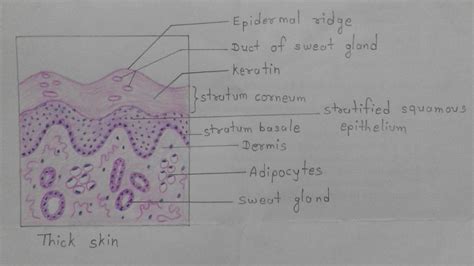 Epidermal ridge
Duct of sweat gland
keratin
stratum corneum
stratified squamous
epithelium
stratum basale
Dermis
Adipocytes
sweat gland
Thick skin